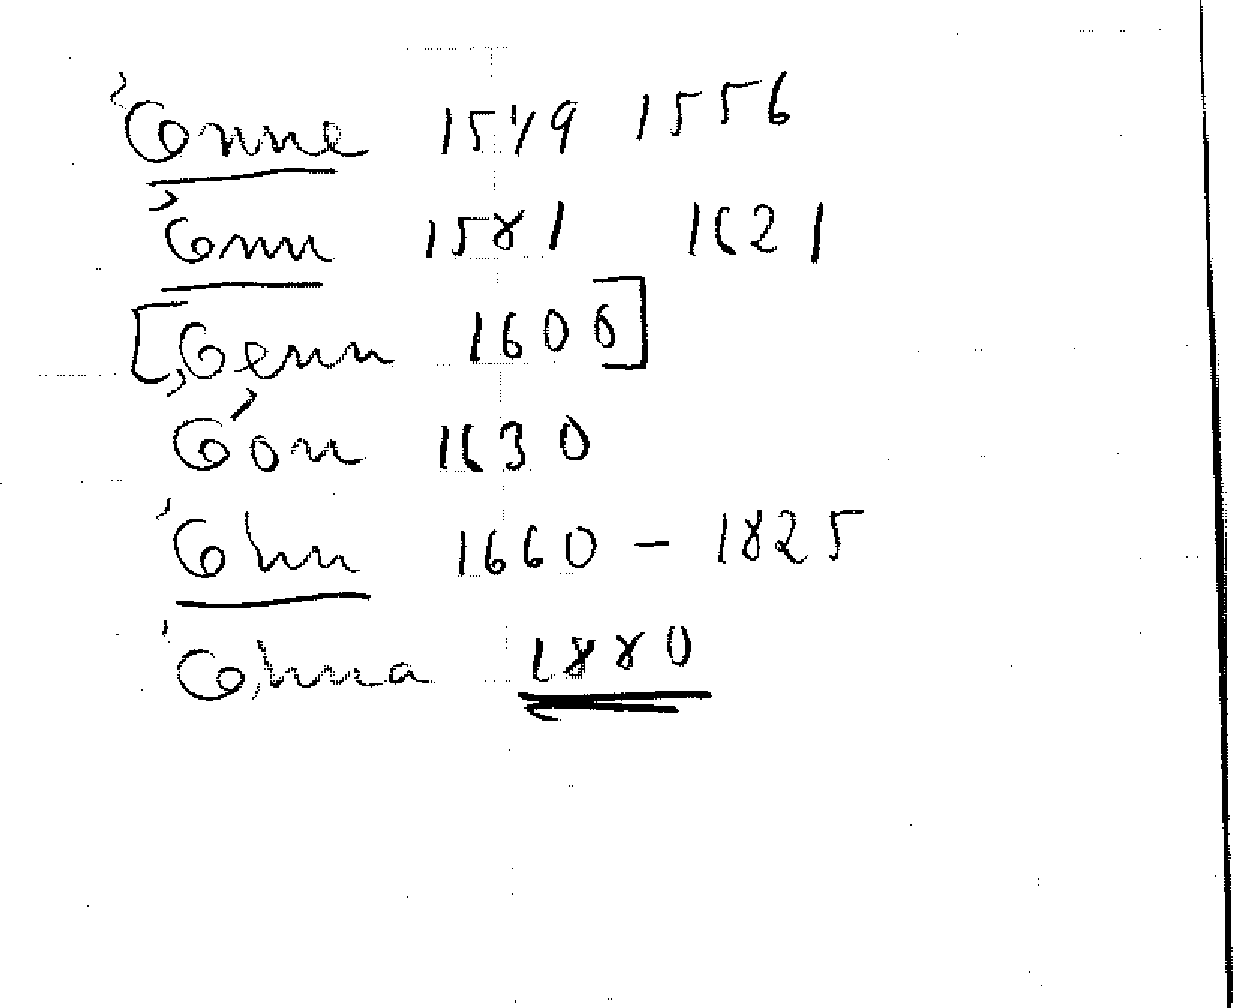 'Onne 1549 1556
'Onn 1581 1621
['Oenn 1606]
O'on 1630
'Ohn 1660 – 1825
'Ohna 1880